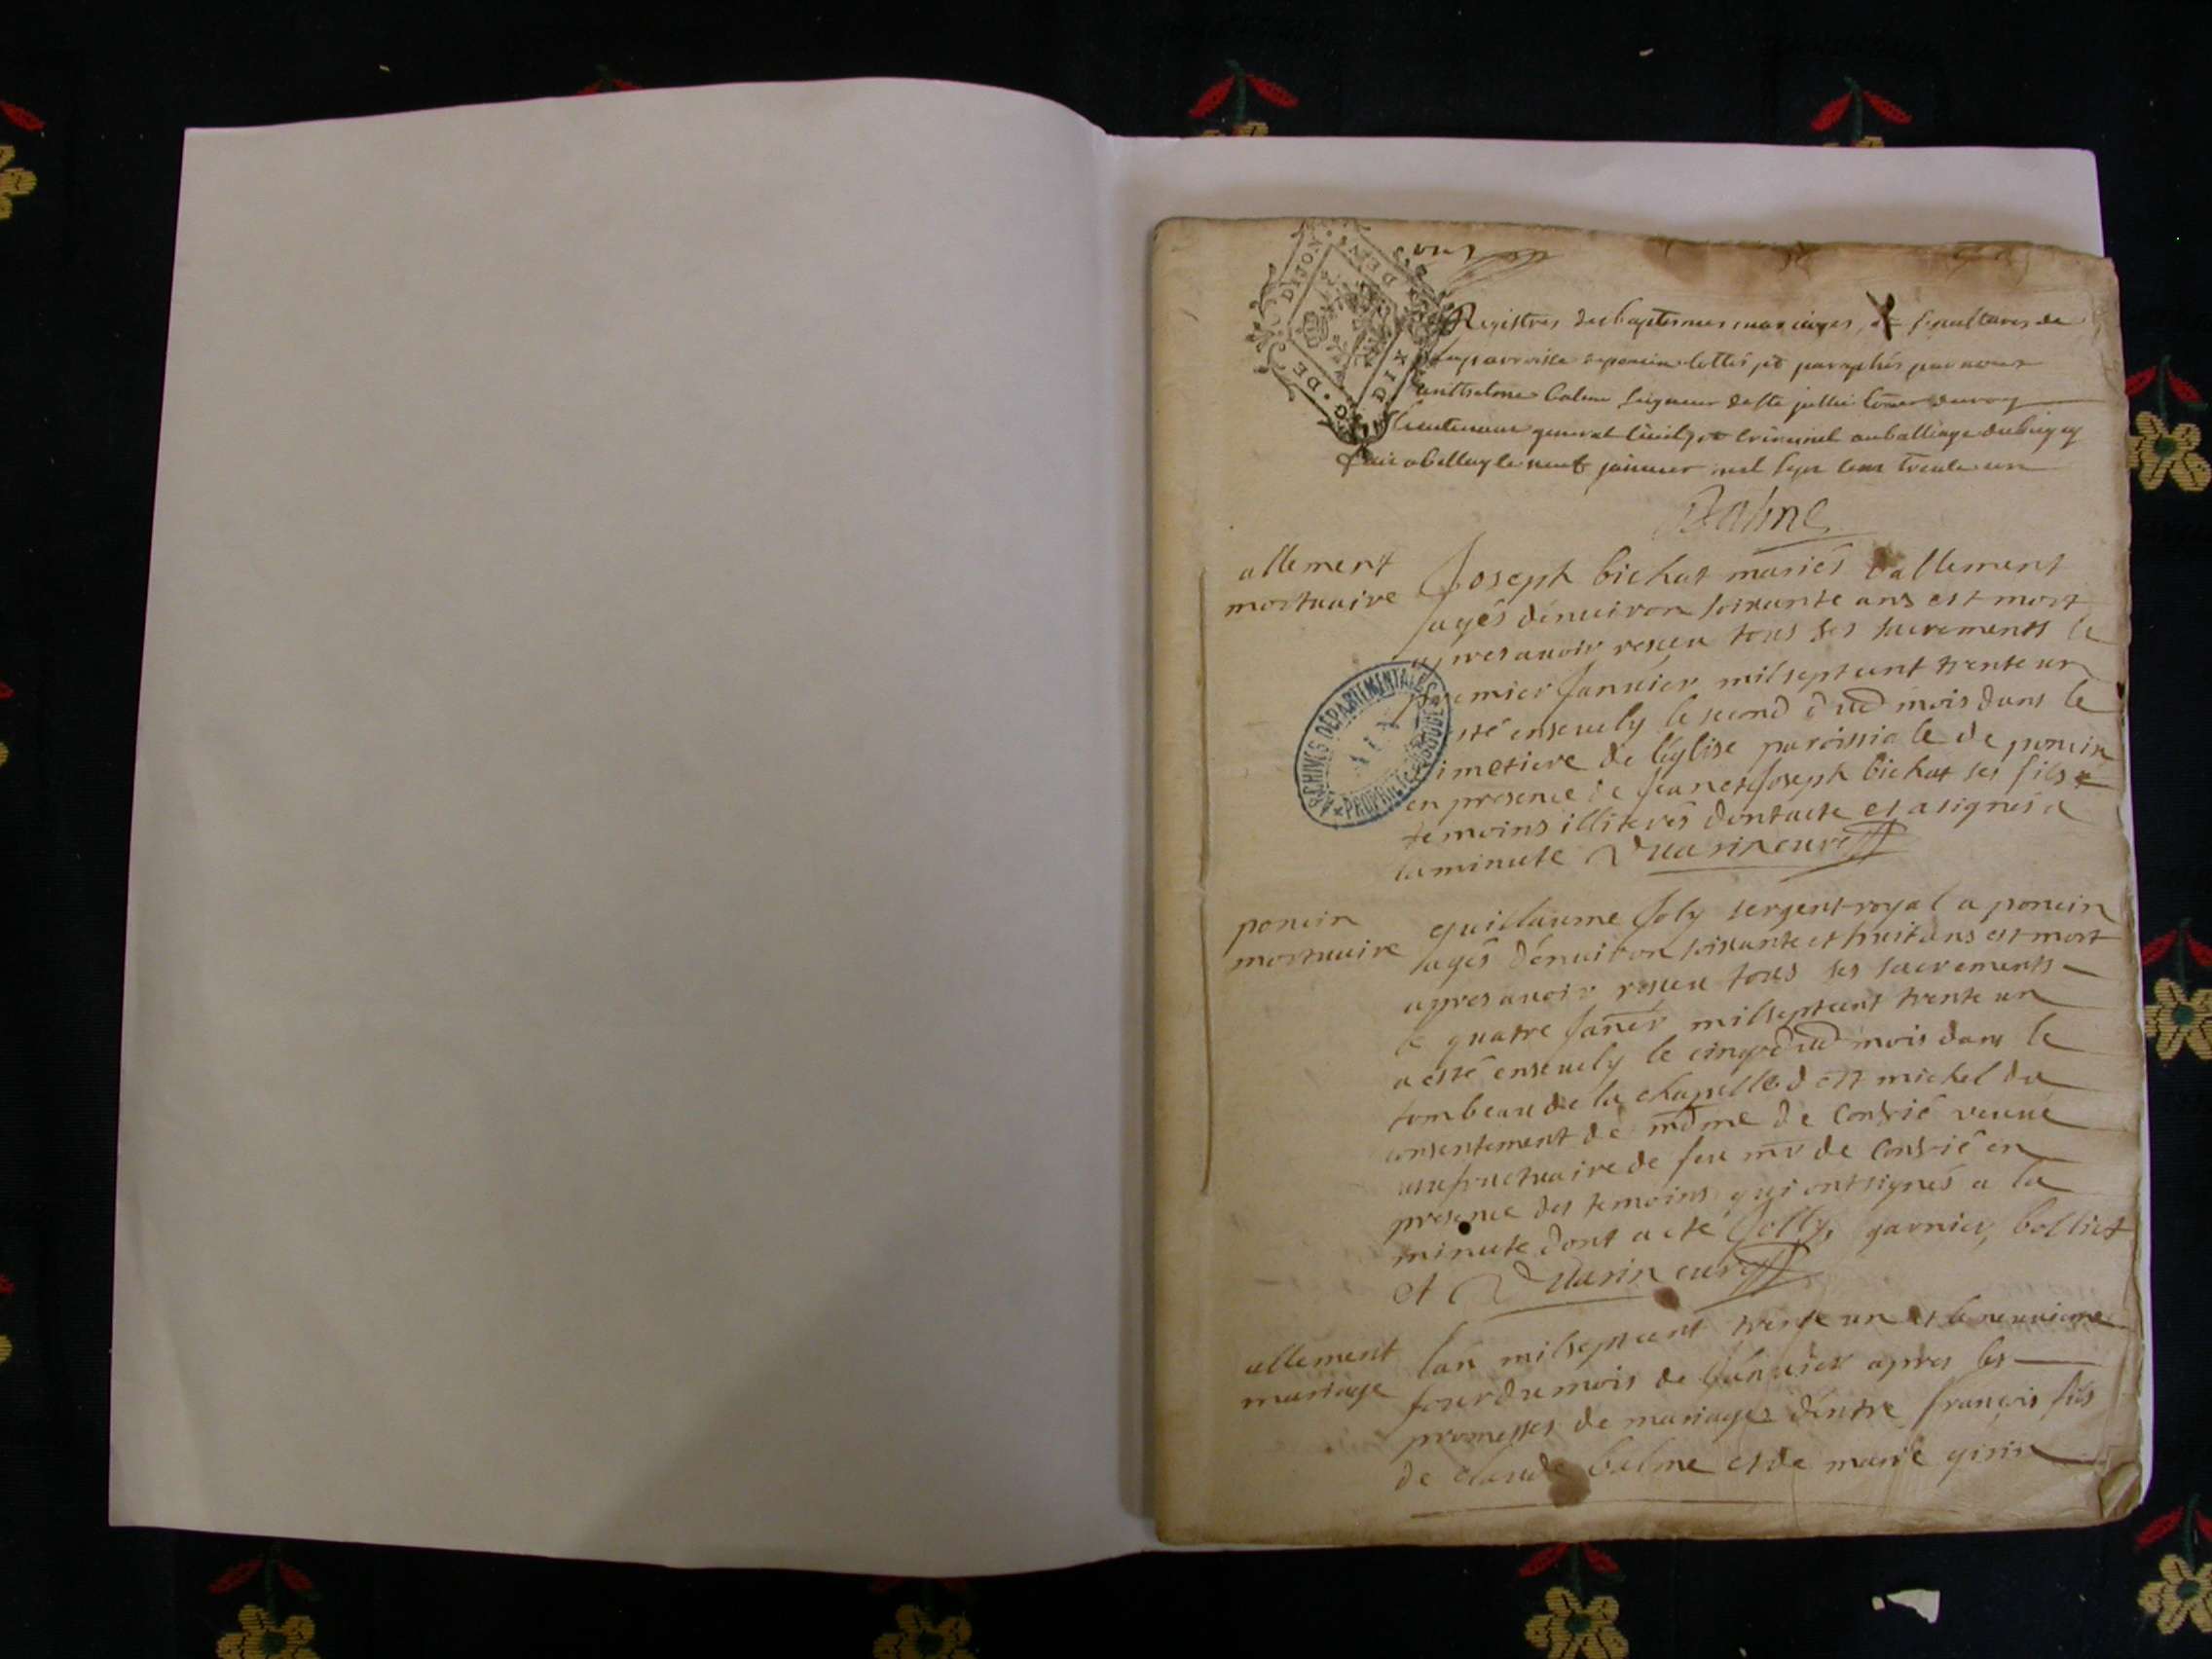 Registres des baptesmes mariages, et sepultures de
la parroisse de poncin cottés et paraphés par nous
anthelme balme seigneur de ste jullie Coner du roy
lieutenant general Civil et criminel au balliage du bugey
fait a belley le neuf janvier mil sept cent trente un
Balme
allement
mortuaire
Joseph bichat mariés dallement
agés dénuiron soixante ans est mort
apres auoir resceu tous ses sacrements le
premier Januier mil sept cent trente un
esté enseuely le second dud mois dans le
cimetiere de léglise paroissiale de poncin
en presence de Jean et Joseph bichat ses fils
temoins illiterés dont acte et a signés a
la minute Duarin curé
ARCHIVES DÉPARTEMENTALES
AIN
PROPRIÉTÉ PUBLIQUE
DIJON
G. DE
DIX DEN
poncin
mortuaire
guillaume Joly sergent royal a poncin
agés dénuiron soixante et huit ans est mort
apres auoir resceu tous ses sacrements
le quatre Janer mil sept cent trente un
a esté enseuely le cinq dud mois dans le
tombeau de la chapelle de st michel du
consentement de mdme de Conzié veuue
usufructuaire de feu mr de Conzié en
presence des temoins qui ont signés a la
minute dont acte Jolly, garnier, bolliet
et Duarin curé
allement
mariage
lan mil sept cent trente un et le neuuieme
Jour du mois de Januier apres les
promesses de mariages déntre françois fils
de claude balme et de marie girin